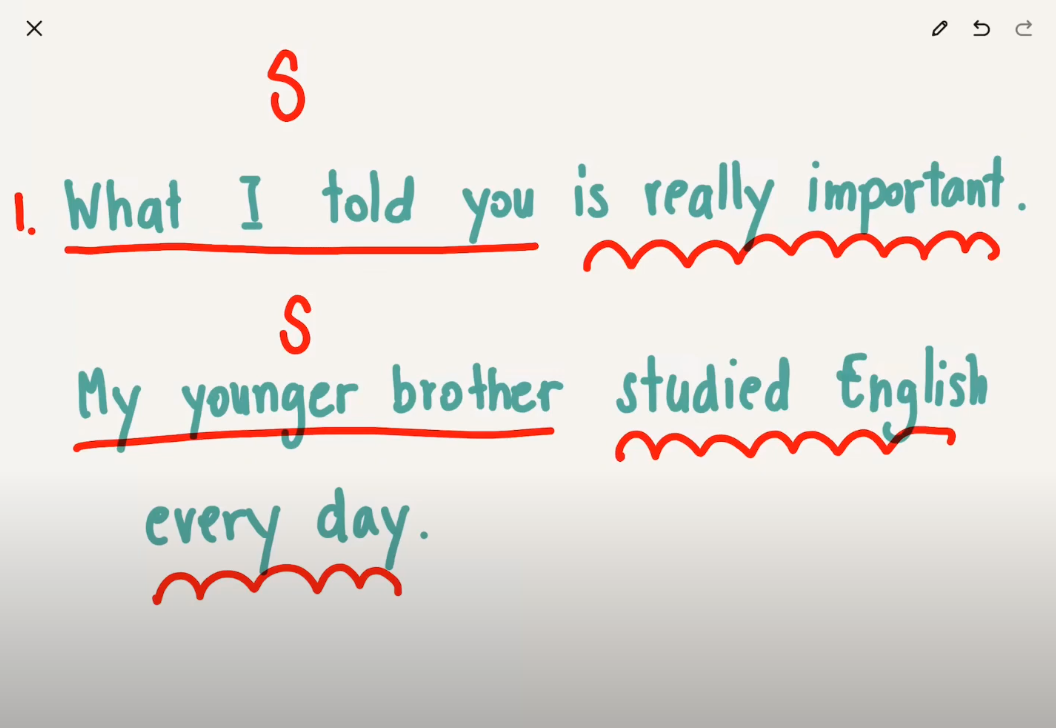 S
1. What I told you is really important.
S
My younger brother studied English
every day.